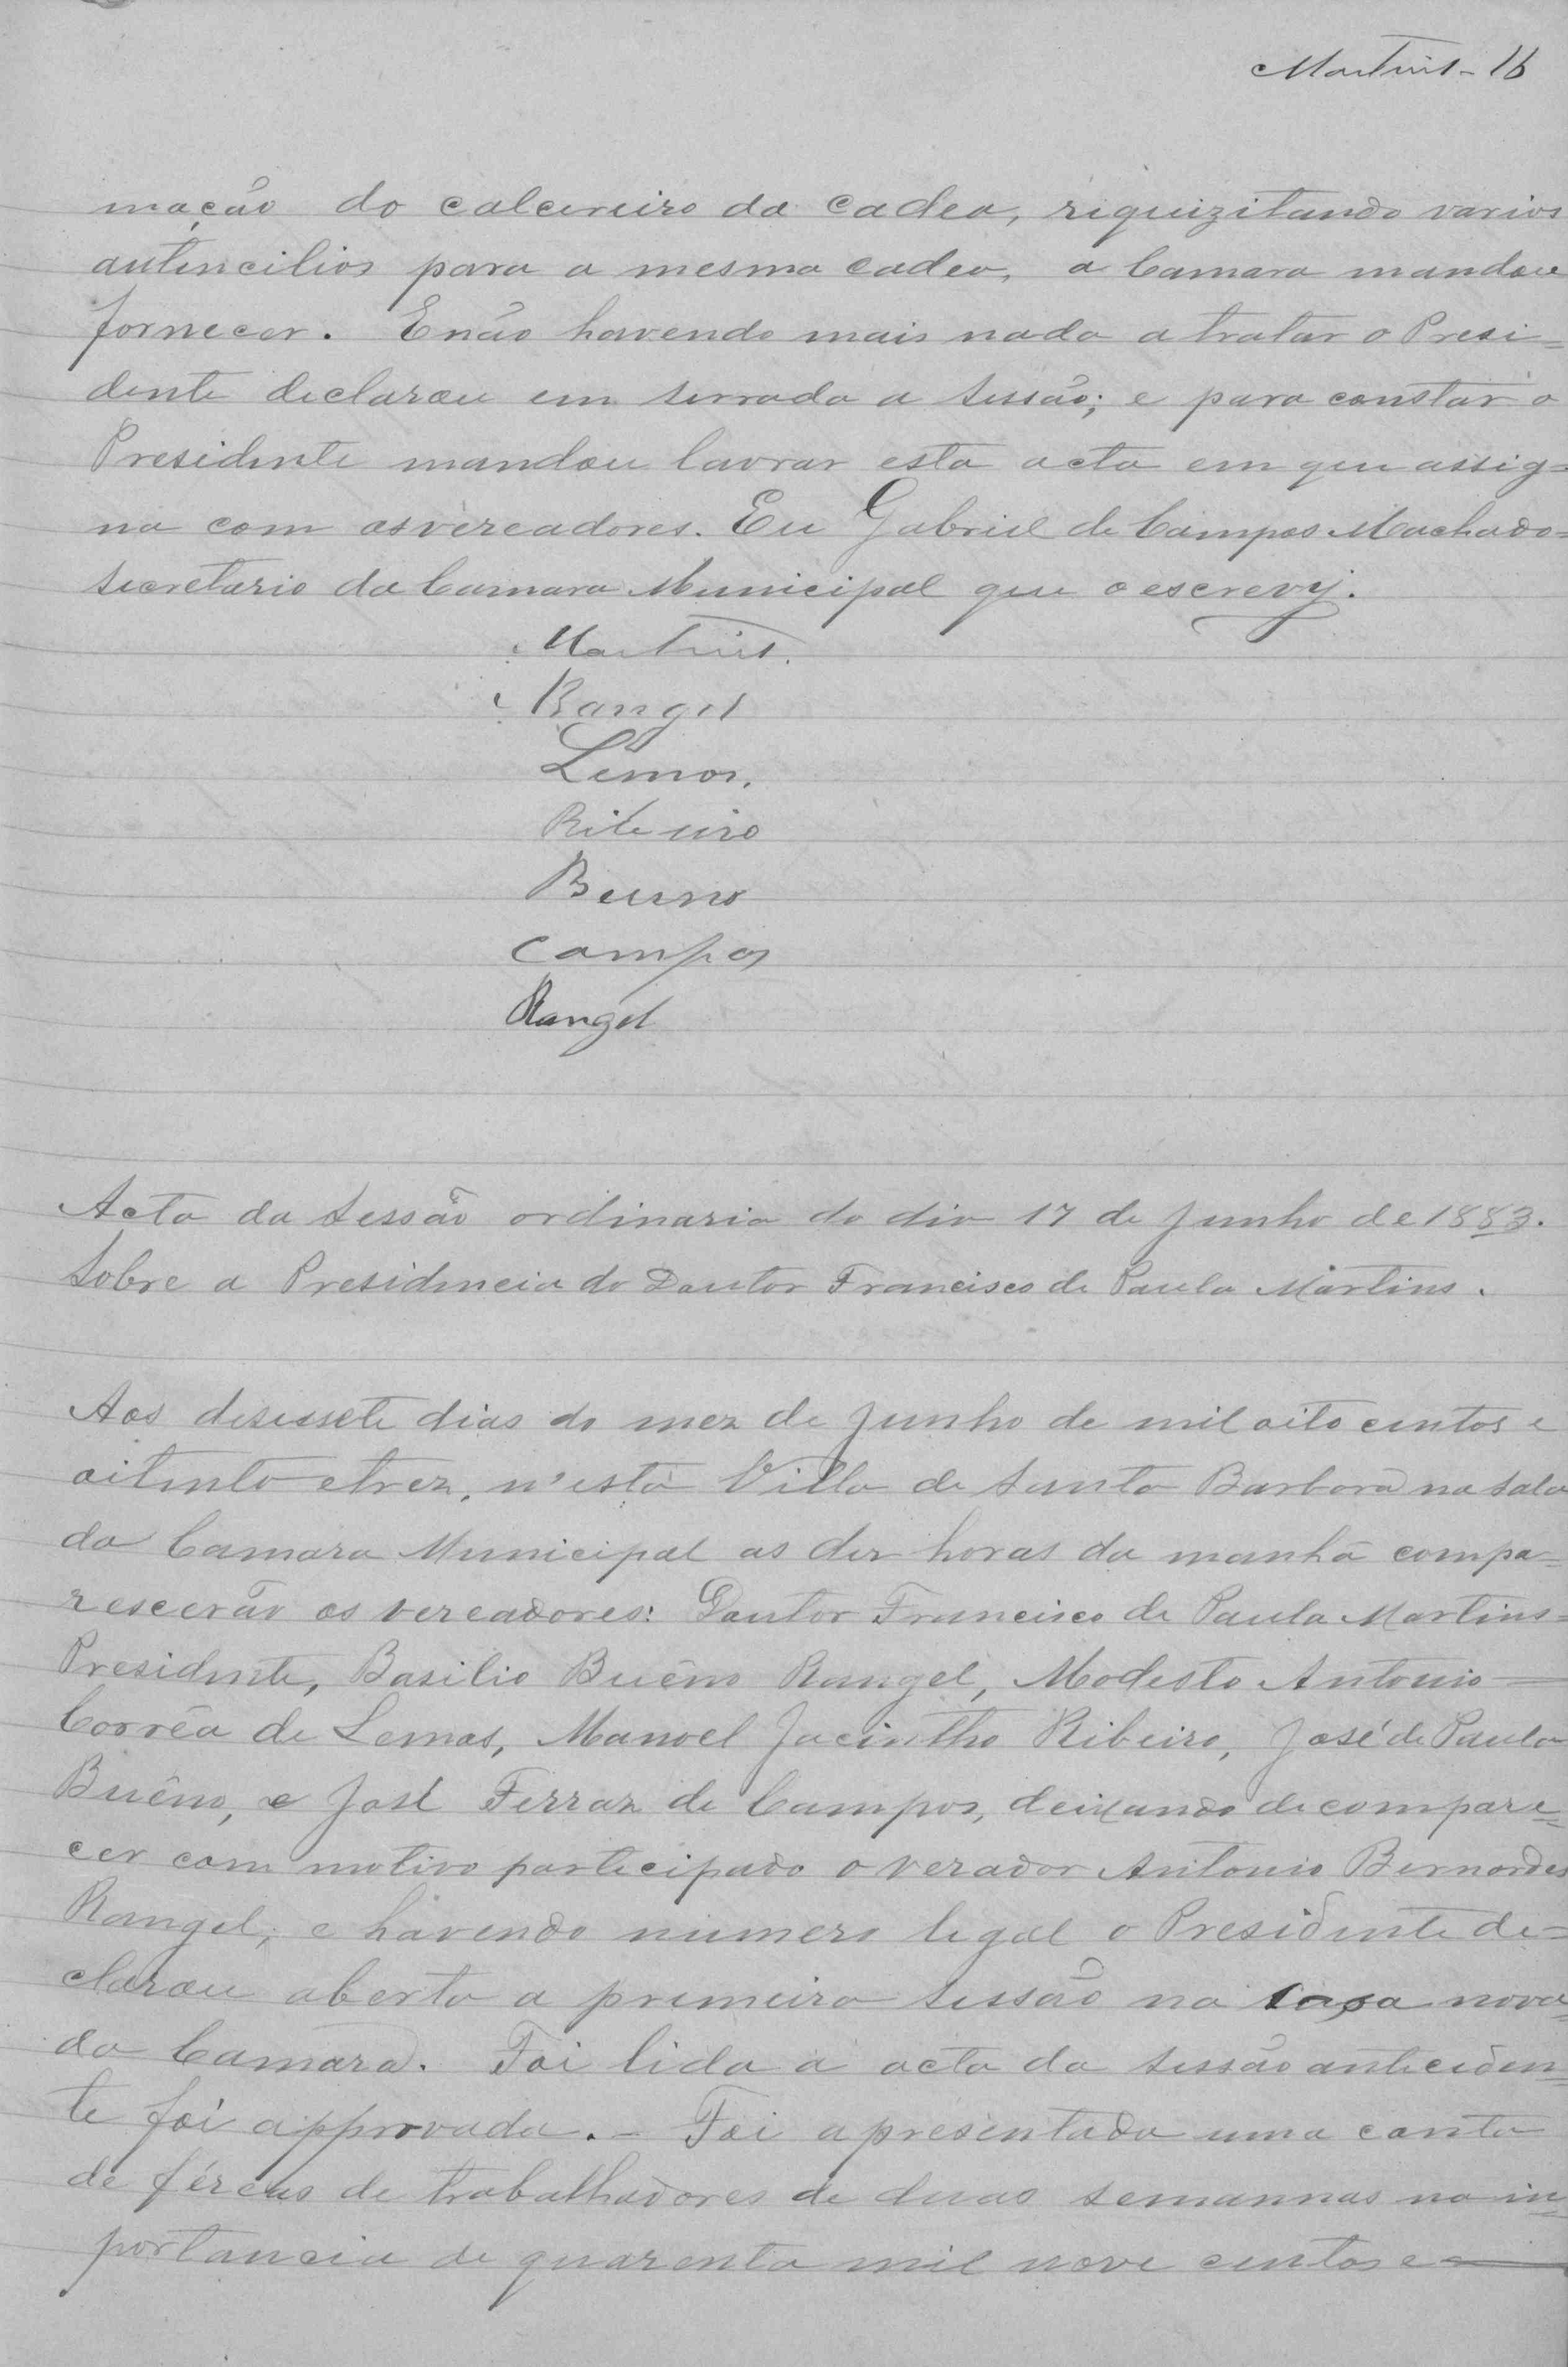 Martins - 16
mação do calcereiro da cadea, riquizitando varios
autincilios para a mesma cadea, a Camara mandou
fornecer. E não havendo mais nada a tratar o Presi=
dente declarou em serrada a sessão; e para constar o
Presidente mandou lavrar esta acta em que assig=
na com os vereadores. Eu Gabriel de Campos Machado=
secretario da Camara Municipal que o escrevy.
Martins.
Rangel
Lemos.
Ribeiro
Bueno
Campos
Rangel
Acta da sessão ordinaria do dia 17 de Junho de 1883.
Sobre a Presidencia do Doutor Francisco de Paula Martins.
Aos desessete dias do mez de Junho de mil oito centos e
oitenta e trez, n'esta Villa de Santa Barbora na sala
da Camara Municipal as dez horas da manhã compa=
rescerão os vereadores: Doutor Francisco de Paula Martins=
Presidente, Basilio Buêno Rangel, Modesto Antonio=
Corrêa de Lemos, Manoel Jacintho Ribeiro, José de Paula
Buêno, e José Ferraz de Campos, deixando de compare=
cer com motivo participado o verador Antonio Bernardes
Rangel, e havendo numero legal o Presidente de=
clarou aberta a primeira sessão na casa nova=
da Camara. Foi lida a acta da sessão anteceden=
te foi approvada. - Foi apresentada uma conta
de féreas de trabalhadores de duas semannas na in=
portancia de quarenta mil nove centos e